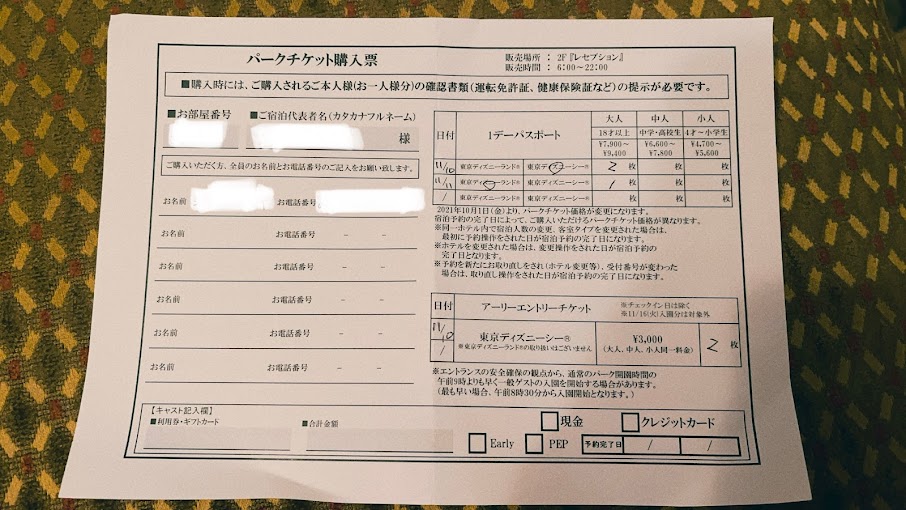 パークチケット購入票
販売場所 : 2F『レセプション』
販売時間 : 6:00～22:00
■購入時には、ご購入されるご本人様(お一人様分)の確認書類(運転免許証、健康保険証など)の提示が必要です。
■お部屋番号 ■ご宿泊代表者名(カタカナフルネーム)
様
ご購入いただく方、全員のお名前とお電話番号のご記入をお願い致します。
お名前 お電話番号
お名前 お電話番号 － －
お名前 お電話番号 － －
お名前 お電話番号 － －
お名前 お電話番号 － －
お名前 お電話番号 － －
日付 1デーパスポート 大人 中人 小人
18才以上 中学・高校生 4才～小学生
¥7,900～ ¥6,600～ ¥4,700～
¥9,400 ¥7,800 ¥5,600
11/10 東京ディズニーランド® 東京ディズニーシー® 2枚 枚 枚
11/11 東京ディズニーランド® 東京ディズニーシー® 1枚 枚 枚
/ 東京ディズニーランド® 東京ディズニーシー® 枚 枚 枚
2021年10月1日(金)より、パークチケット価格が変更になります。
宿泊予約の完了日によって、ご購入いただけるパークチケット価格が異なります。
※同一ホテル内で宿泊人数の変更、客室タイプを変更された場合は、
最初に予約操作をされた日が宿泊予約の完了日になります。
※ホテルを変更された場合は、変更操作をされた日が宿泊予約の
完了日となります。
※予約を新たにお取り直しをされ(ホテル変更等)、受付番号が変わった
場合は、取り直し操作をされた日が宿泊予約の完了日になります。
日付 アーリーエントリーチケット ※チェックイン日は除く
※11/16(火)入園分は対象外
11/10 東京ディズニーシー® ¥3,000 2枚
/ ※東京ディズニーランド®の取り扱いはございません (大人、中人、小人同一料金)
※エントランスの安全確保の観点から、通常のパーク開園時間の
午前9時よりも早く一般ゲストの入園を開始する場合があります。
(最も早い場合、午前8時30分から入園開始となります。)
【キャスト記入欄】
■利用券・ギフトカード ■合計金額
□現金 □クレジットカード
□Early □PEP 予約完了日 / /